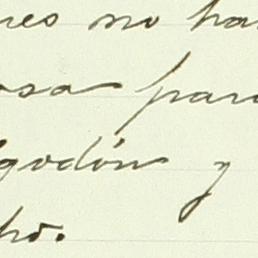 res no ha
osa para
godón y
ho.